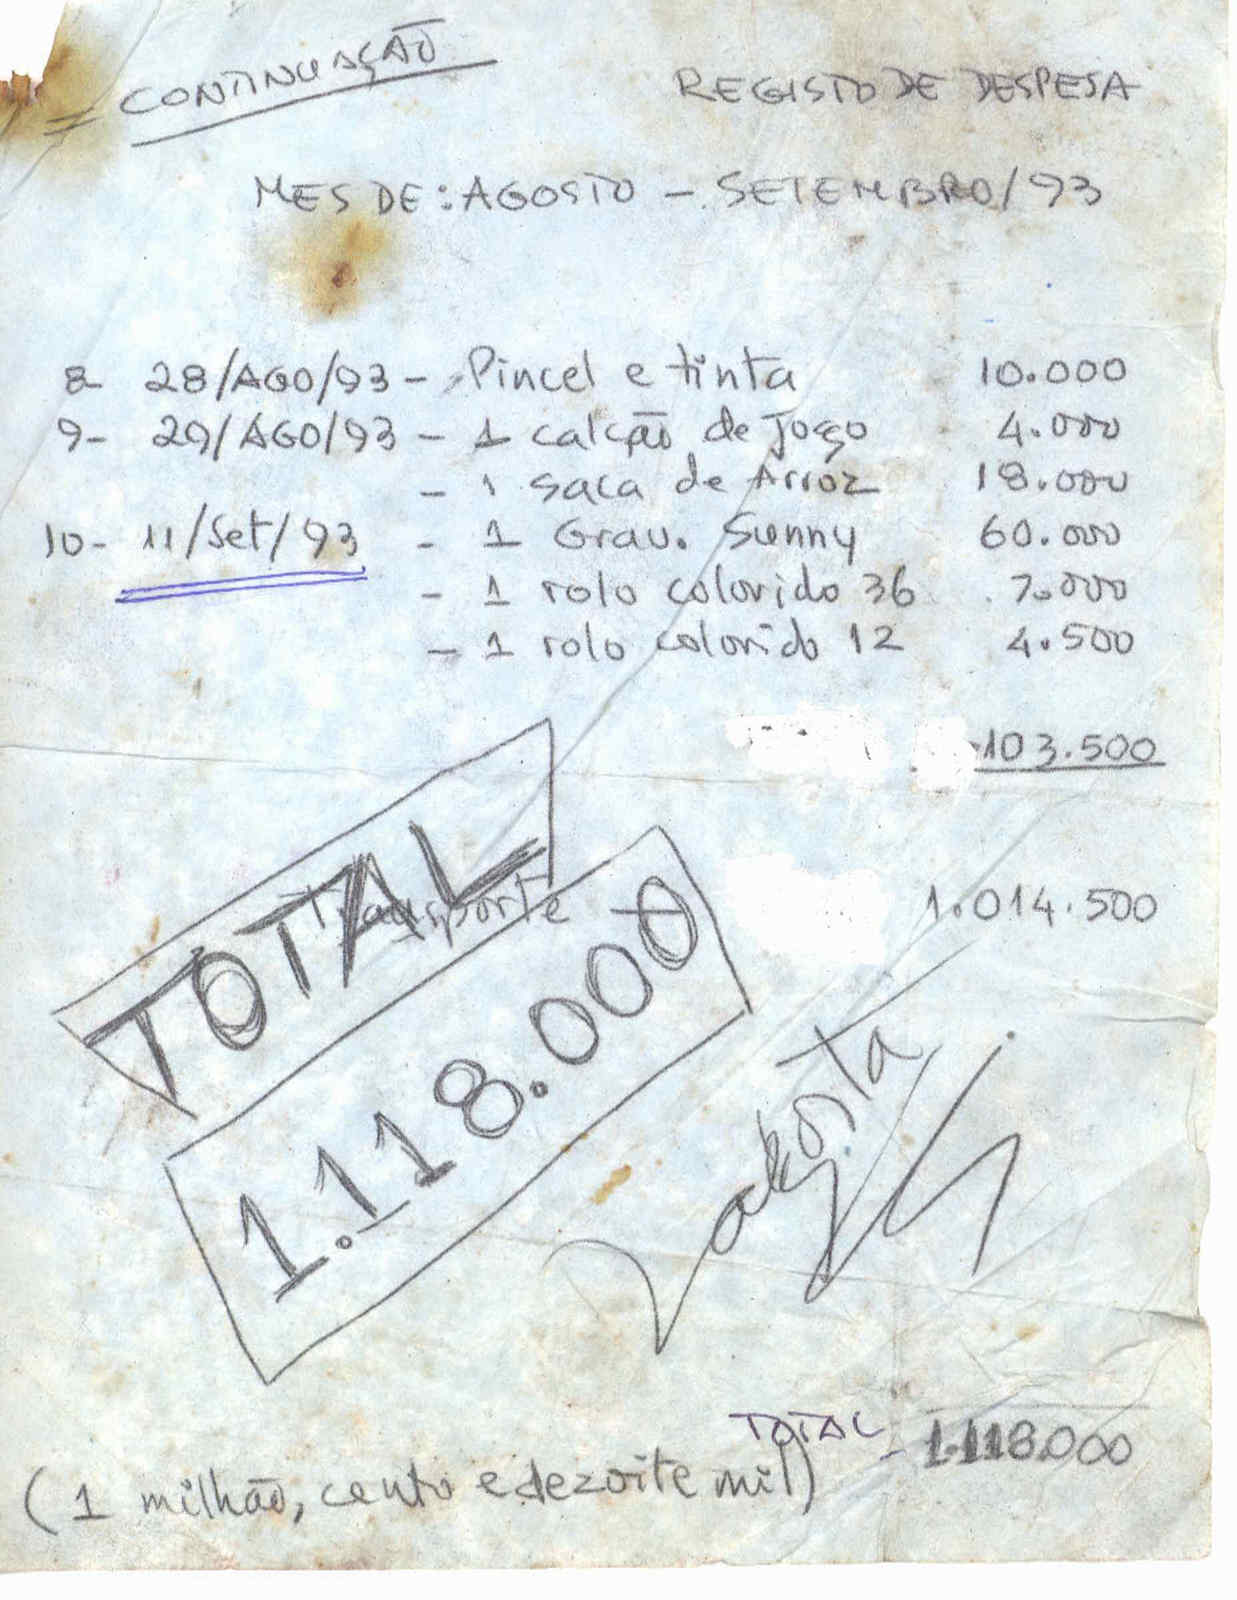 = CONTINUAÇÃO
REGISTO DE DESPESA
MES DE: AGOSTO - SETEMBRO/93
8- 28/AGO/93 - Pincel e tinta 10.000
9- 29/AGO/93 - 1 calcão de jogo 4.000
- 1 saca de Arroz 18.000
10- 11/Set/93 - 1 Grav. Sunny 60.000
- 1 rolo colorido 36 7.000
- 1 rolo colorido 12 4.500
103.500
Transporte 1.014.500
TOTAL
1.118.000
TOTAL - 1.118.000
(1 milhão, cento e dezoite mil)